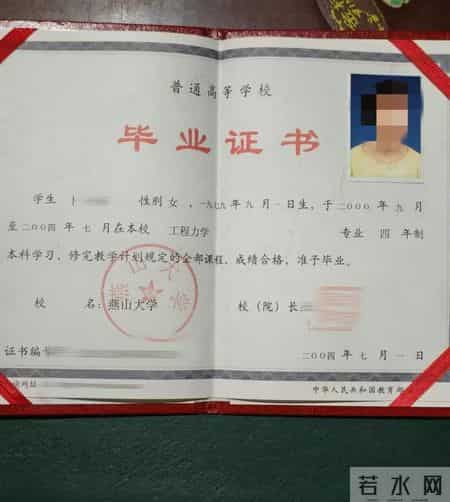 普通高等学校
毕业证书
学生 卜 性别 女，一九七九年九月一日生，于二〇〇〇年九月
至二〇〇四年七月在本校 工程力学 专业 四年制
本科学习，修完教学计划规定的全部课程，成绩合格，准予毕业。
校 名：燕山大学 校（院）长
证书编号
二〇〇四年七月一日
中华人民共和国教育部
燕山大学
若水网